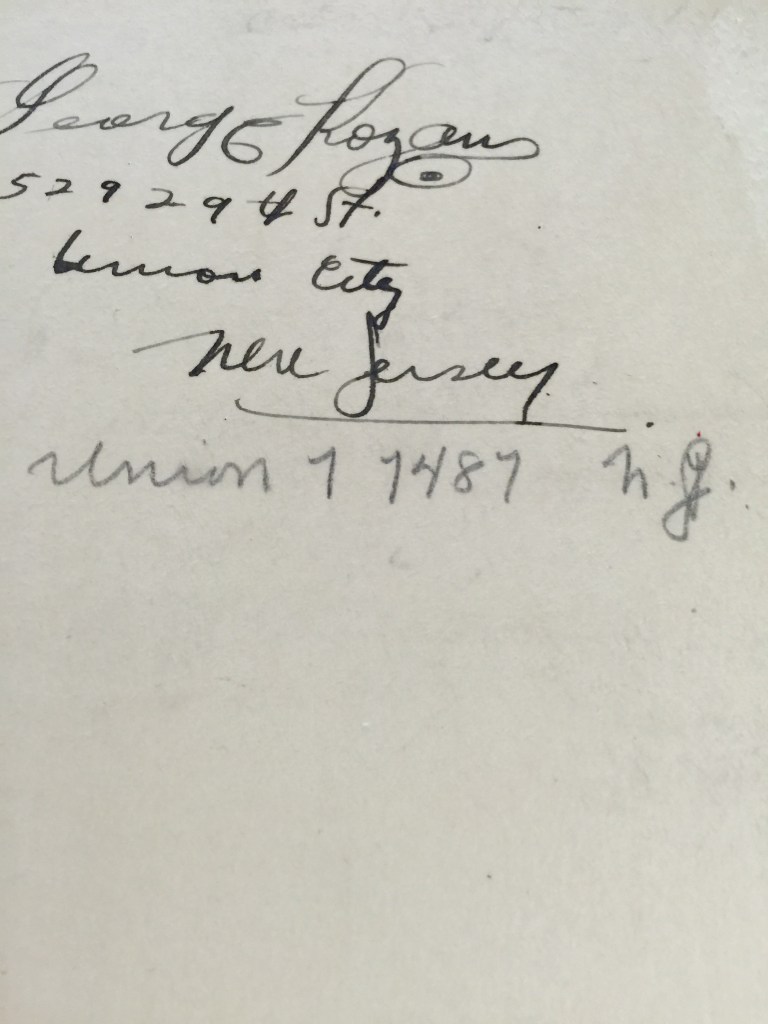 George Rozan
529 29 th St.
Union City
New Jersey.
Union 7 7487 N.J.